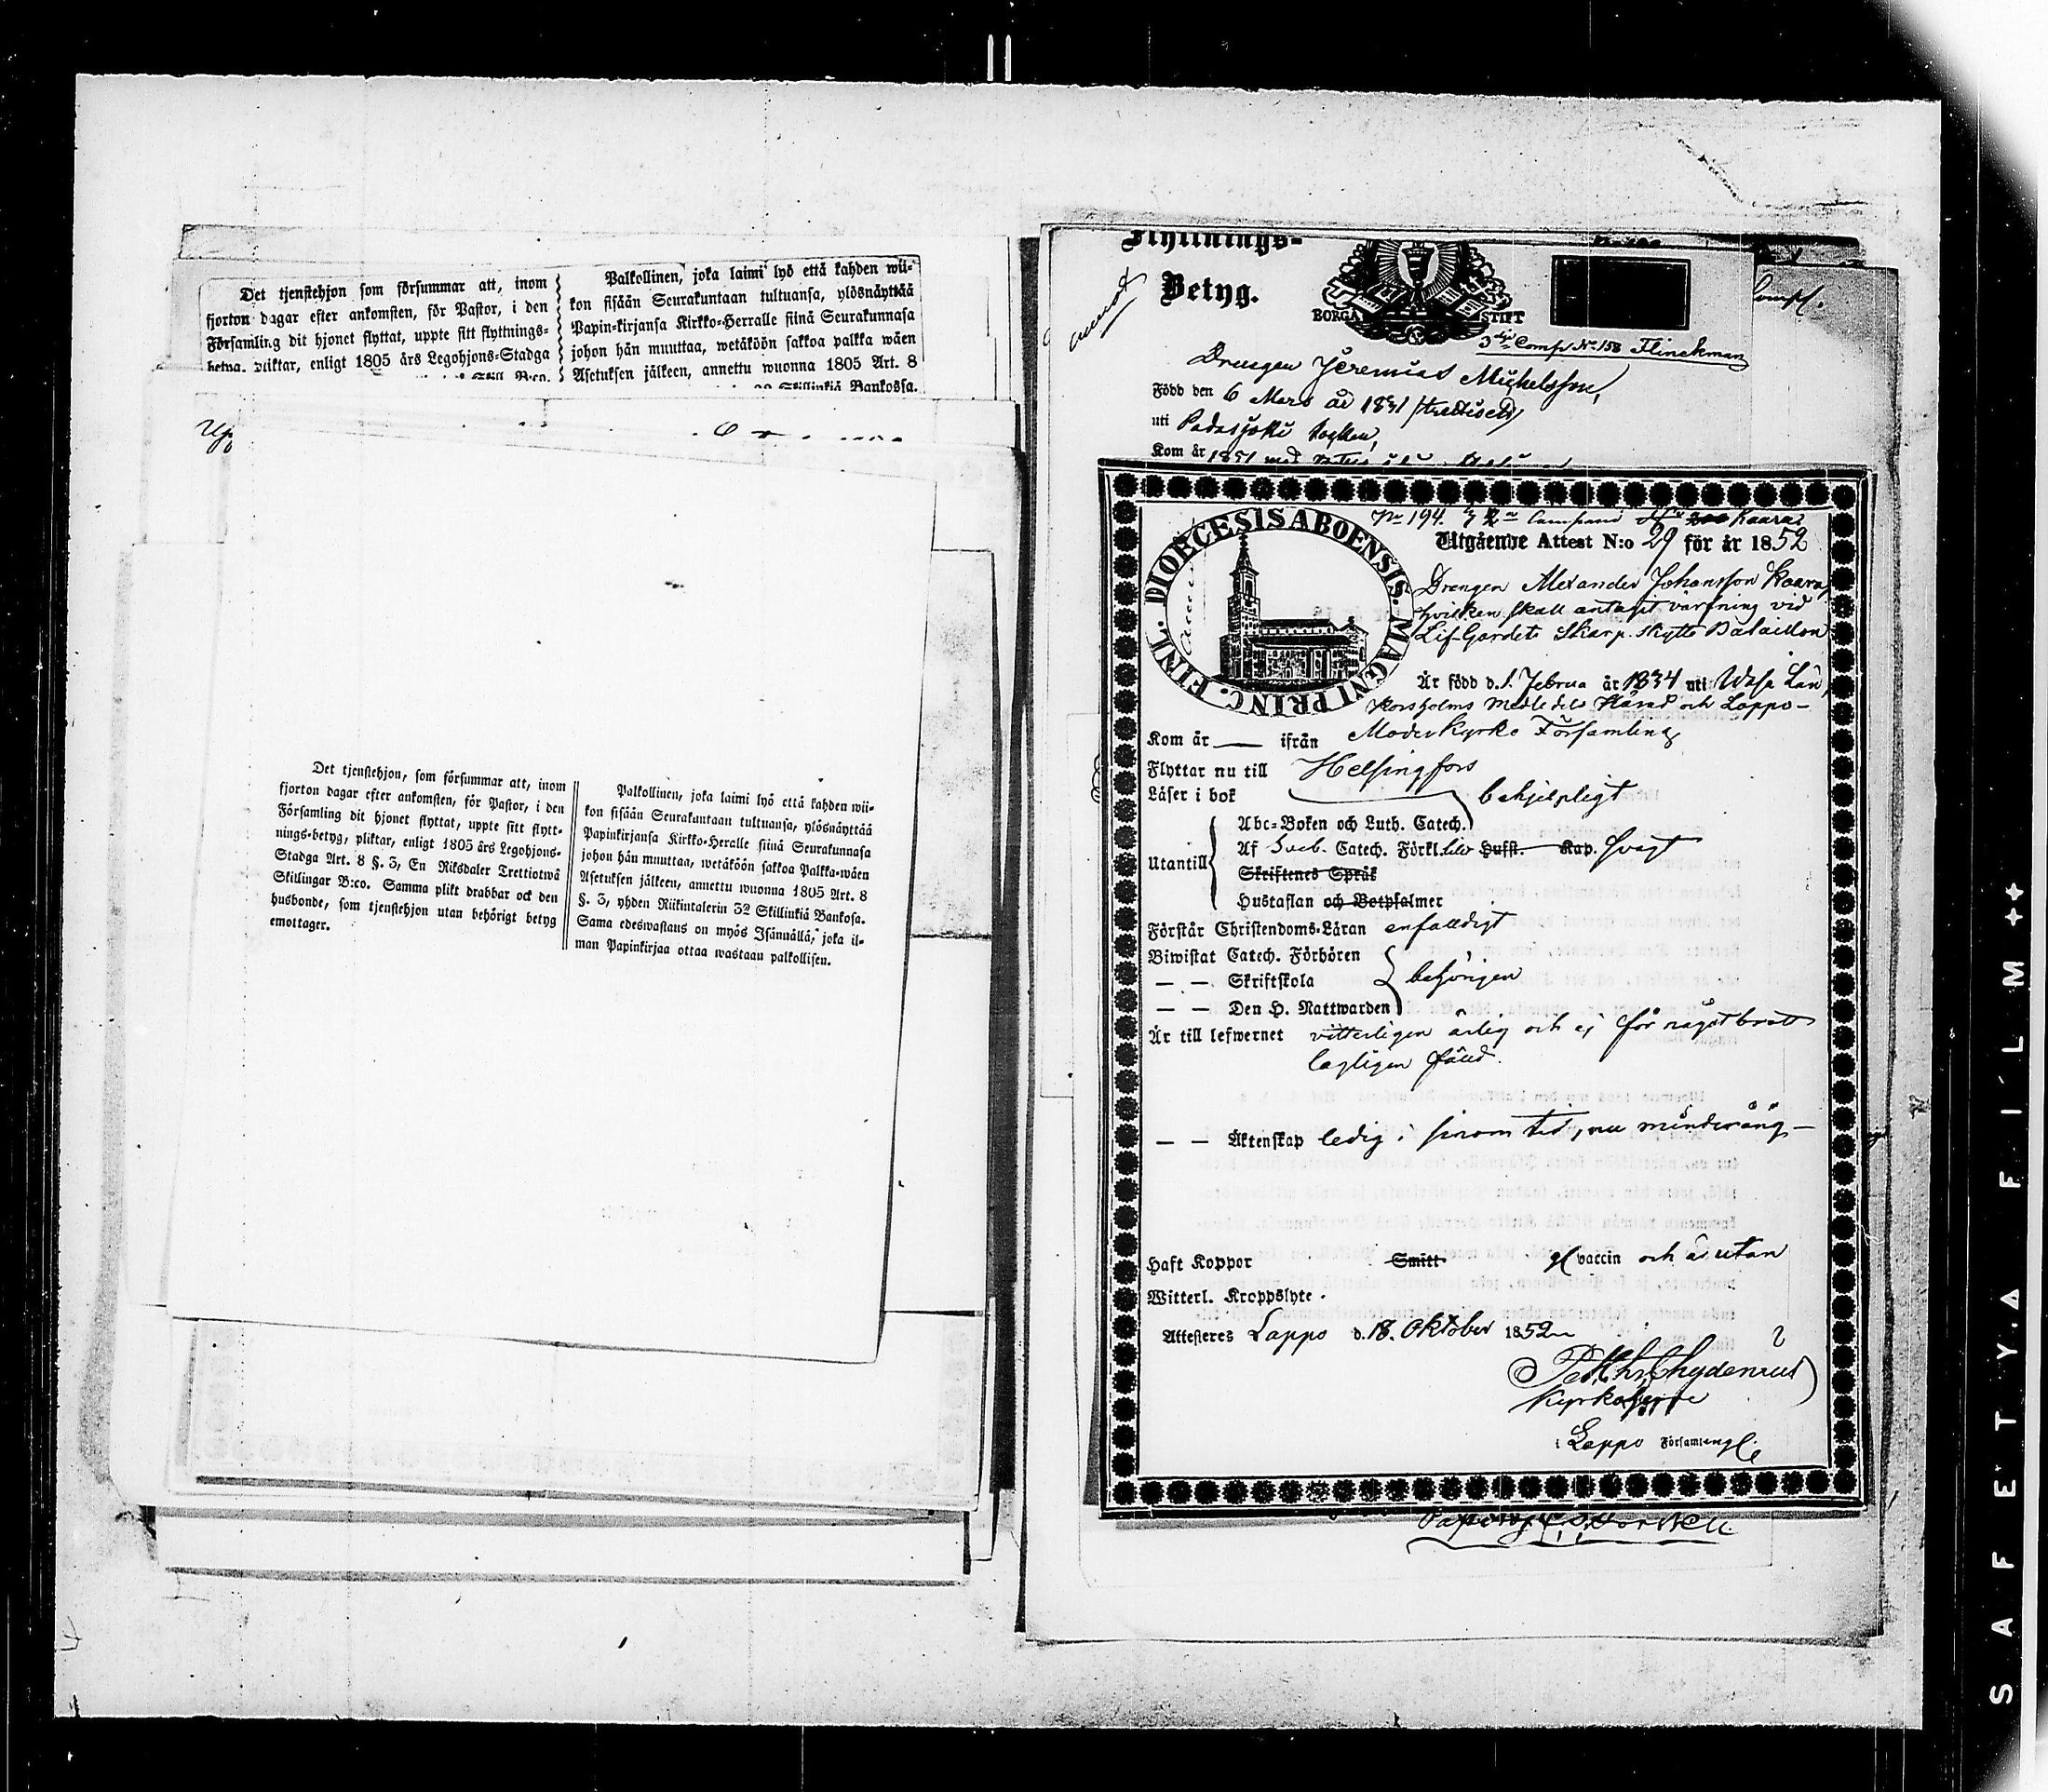 Det tjenstehjon som försummar att, inom
fjorton dagar efter ankomsten, för Pastor, i den
Församling dit hjonet flyttat, uppte sitt flyttnings-
betyg, pliktar, enligt 1805 års Legohjons-Stadga
Skill. B:co.
Palkollinen, joka laimi lyö että kahden wii-
kon sisään Seurakuntaan tultuansa, ylösnäyttää
Papin-kirjansa Kirkko-Herralle siinä Seurakunnasa
johon hän muuttaa, wetäköön sakkoa palkka wäen
Asetuksen jälkeen, annettu wuonna 1805 Art. 8
Skillinkiä Bankossa.
Det tjenstehjon, som försummar att, inom
fjorton dagar efter ankomsten, för Pastor, i den
Församling dit hjonet flyttat, uppte sitt flytt-
nings-betyg, pliktar, enligt 1805 års Legohjons-
Stadga Art. 8 §. 3, En Riksdaler Trettiotwå
Skillingar B:co. Samma plikt drabbar ock den
husbonde, som tjenstehjon utan behörigt betyg
emottager.
Palkollinen, joka laimi lyö että kahden wii-
kon sisään Seurakuntaan tultuansa, ylösnäyttää
Papinkirjansa Kirkko-Heralle siinä Seurakunnasa
johon hän muuttaa, wetäköön sakkoa Palkka-wäen
Asetuksen jälkeen, annettu wuonna 1805 Art. 8
§. 3, yhden Riikintalerin 32 Skillinkiä Bankosa.
Sama edeswastaus on myös Isännällä, joka il-
man Papinkirjaa ottaa wastaan palkollisen.
Flyttnings-
Betyg.
BORGÅ STIFT
Comp. No 158 Flinckman
Drengen Jeremias Michelsson,
Född den 6 Mars år 1831 /trettioett/
uti Padasjoki socken,
Kom år 1851 med
Comp.
No 194. Compani Kaara
DIOECESIS ABOENSIS. MAGNI PRINC. FINL.
Utgående Attest N:o 29 för år 1852
Drengen Alexander Johansson Kaara,
hvilken skall antagit värfning vid
Lif-Gardets Skarp-skytte Bataillon
Är född d. 1. Februa år 1834 uti Wasa Län,
Korsholms Medledels Härad och Lappo-
Kom år — ifrån Moderkyrko Församling
Flyttar nu till Helsingfors
Läser i bok behjelpligt
Abc-Boken och Luth. Catech.
Utantill Af Sveb. Catech. Förkl. Hufst. Kap. svagt
Skriftenes Språk
Hustaflan och Botpsalmer
Förstår Christendoms-Läran enfaldigt
Biwistat Catech. Förhören
— — Skriftskola behörigen
— — Den H. Nattwarden
Är till lefwernet vitterligen ärlig och ej för något brott
lagligen fälld.
— — Äktenskap ledig i sinom tid, nu minderårig —
Haft Koppor Smitt vaccin och är utan
Witterl. Kroppslyte.
Attesteres Lappo d. 18. Oktober 1852
Chydenius
Kyrkoherde
i Lappo Församling
SAFETY FILM